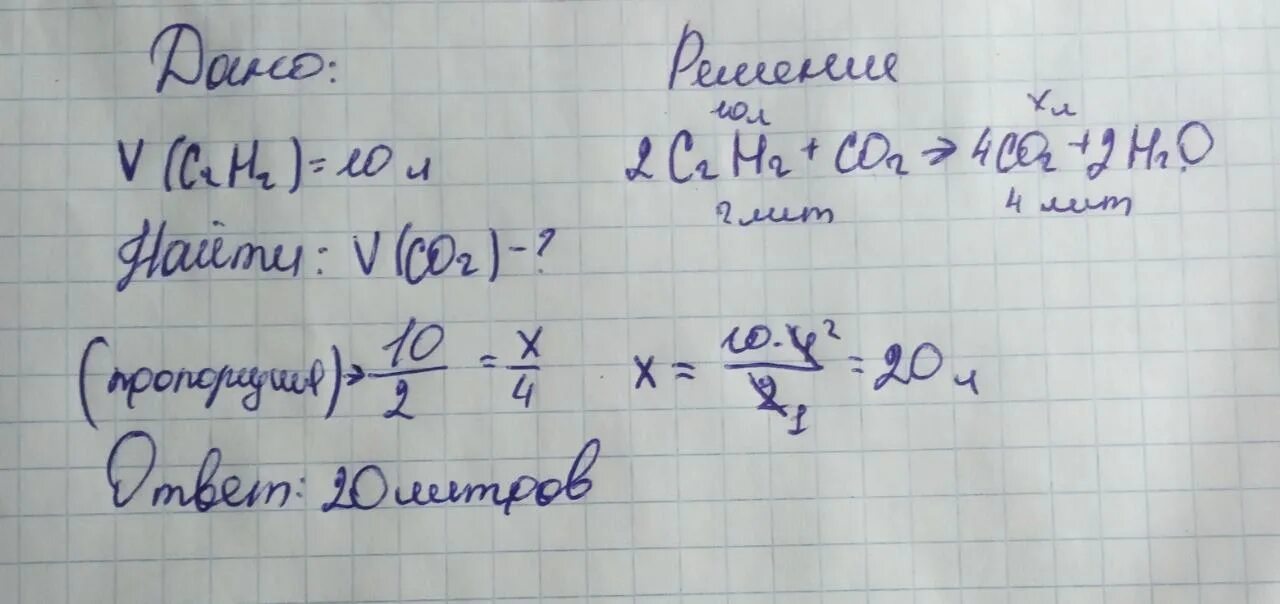 Дано:
V (C₂H₂) = 10 л
Найти: V (CO₂) - ?
Решение
10л хл
2C₂H₂ + CO₂ → 4CO₂ + 2H₂O
2лит 4 лит
(пропорция) → 10/2 = x/4 x = 10·4²/2₁ = 20 л
Ответ: 20 литров